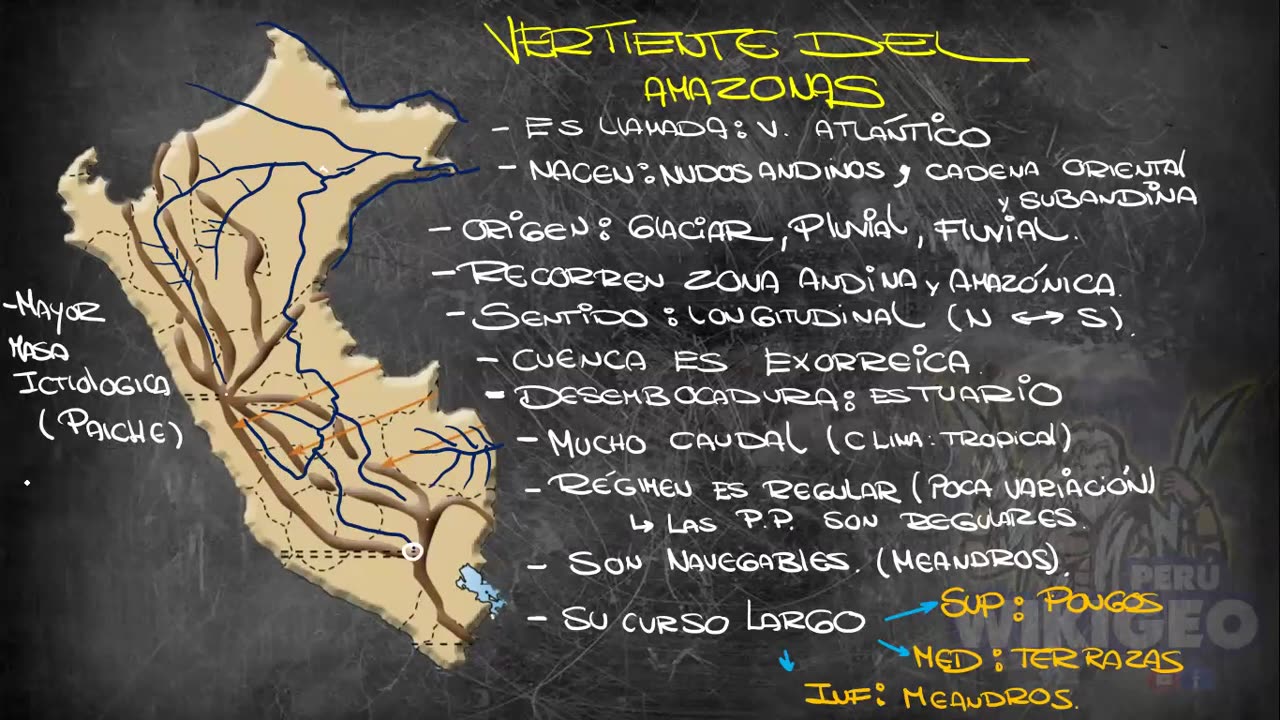 VERTIENTE DEL
AMAZONAS
- ES LLAMADA: V. ATLÁNTICO
- NACEN: NUDOS ANDINOS y CADENA ORIENTAL
y SUBANDINA
- ORIGEN: GLACIAR, PLUVIAL, FLUVIAL.
- RECORREN ZONA ANDINA y AMAZÓNICA.
- SENTIDO: LONGITUDINAL (N ↔ S).
- CUENCA ES EXORREICA.
- DESEMBOCADURA: ESTUARIO
- MUCHO CAUDAL (CLIMA: TROPICAL)
- RÉGIMEN ES REGULAR (POCA VARIACIÓN)
↳ LAS P.P. SON REGULARES.
- SON NAVEGABLES. (MEANDROS).
- SU CURSO LARGO
SUP: PONGOS
MED: TERRAZAS
INF: MEANDROS.
- MAYOR
MASA
ICTIOLOGICA
(PAICHE)
PERÚ
WIKIGEO